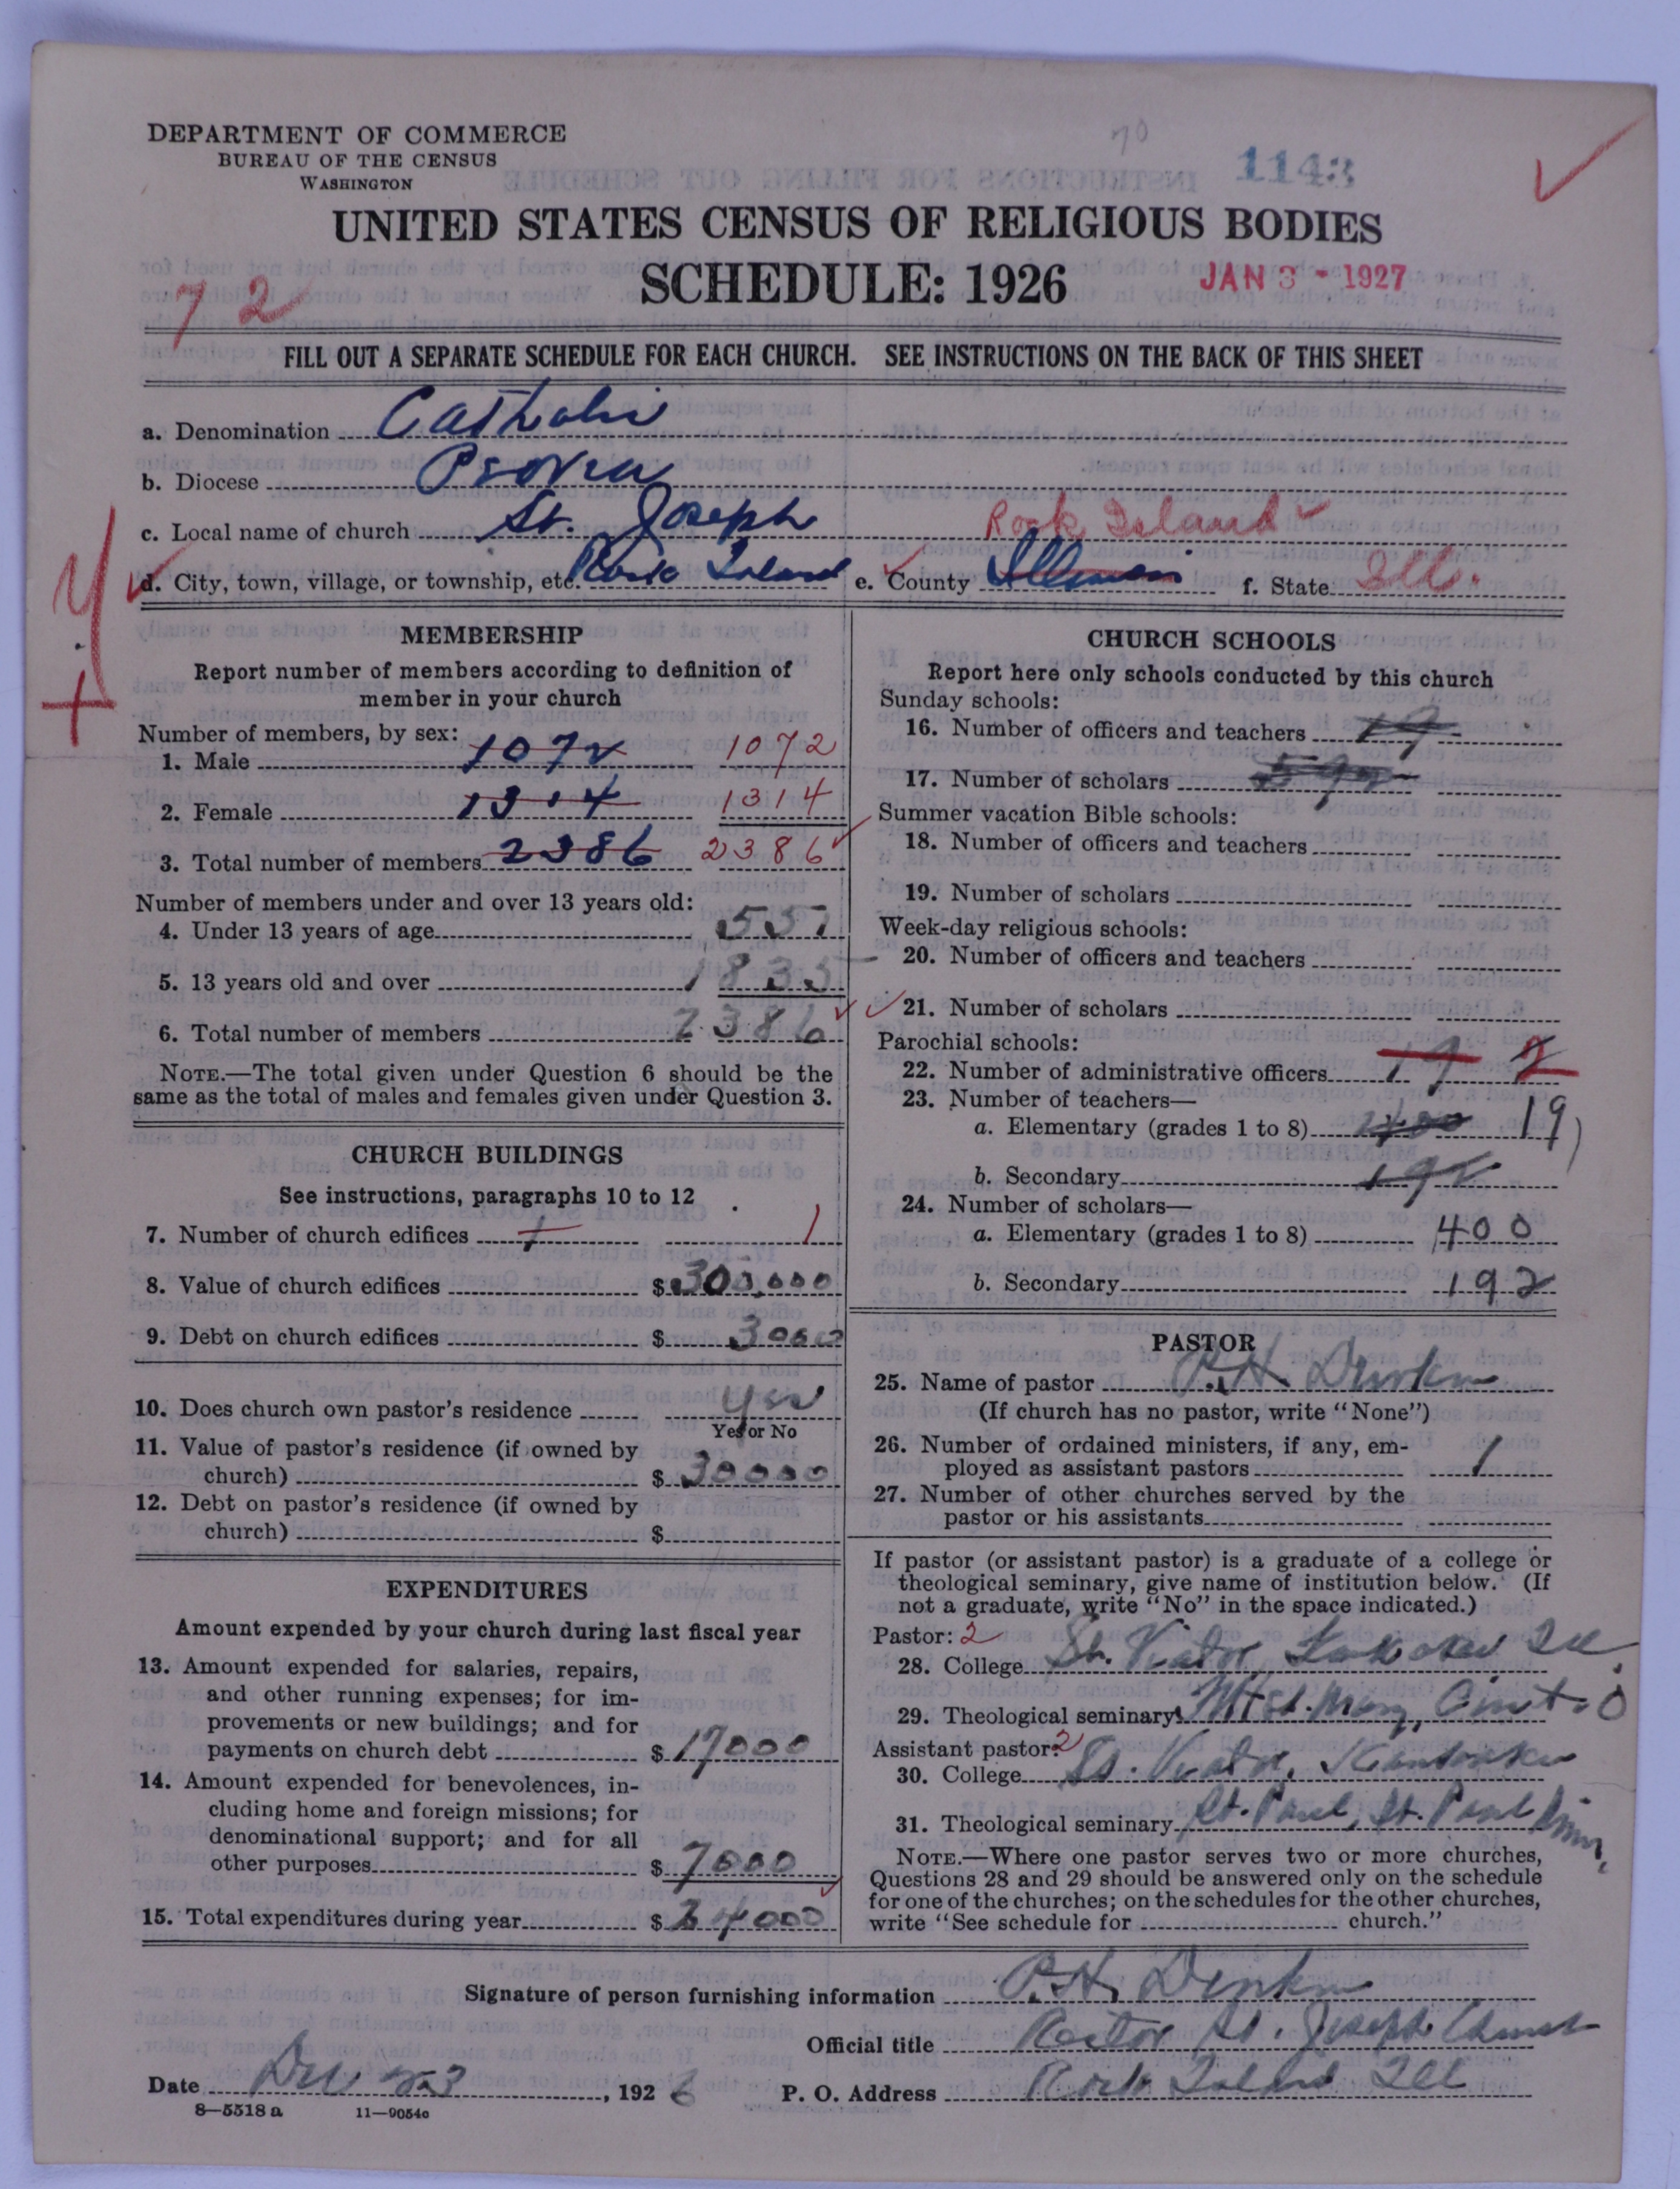 70
1143
DEPARTMENT OF COMMERCE
BUREAU OF THE CENSUS
WASHINGTON
UNITED STATES CENSUS OF RELIGIOUS BODIES
SCHEDULE: 1926
JAN 3 - 1927
72
FILL OUT A SEPARATE SCHEDULE FOR EACH CHURCH. SEE INSTRUCTIONS ON THE BACK OF THIS SHEET
a. Denomination Catholic
b. Diocese Peoria
c. Local name of church St. Joseph Rock Island
d. City, town, village, or township, etc. Rock Island e. County Illinois f. State Ill.
MEMBERSHIP
Report number of members according to definition of
member in your church
Number of members, by sex:
1. Male 1072 1072
2. Female 1314 1314
3. Total number of members 2386 2386
Number of members under and over 13 years old:
4. Under 13 years of age 551
5. 13 years old and over 1835
6. Total number of members 2386
NOTE.—The total given under Question 6 should be the
same as the total of males and females given under Question 3.
CHURCH BUILDINGS
See instructions, paragraphs 10 to 12
7. Number of church edifices 1 1
8. Value of church edifices $ 300,000
9. Debt on church edifices $ 3000
10. Does church own pastor's residence yes
Yes or No
11. Value of pastor's residence (if owned by
church) $ 30000
12. Debt on pastor's residence (if owned by
church) $
EXPENDITURES
Amount expended by your church during last fiscal year
13. Amount expended for salaries, repairs,
and other running expenses; for im-
provements or new buildings; and for
payments on church debt $ 17000
14. Amount expended for benevolences, in-
cluding home and foreign missions; for
denominational support; and for all
other purposes $ 7000
15. Total expenditures during year $ 24000
CHURCH SCHOOLS
Report here only schools conducted by this church
Sunday schools:
16. Number of officers and teachers 19
17. Number of scholars 592
Summer vacation Bible schools:
18. Number of officers and teachers
19. Number of scholars
Week-day religious schools:
20. Number of officers and teachers
21. Number of scholars
Parochial schools:
22. Number of administrative officers 19 2
23. Number of teachers—
a. Elementary (grades 1 to 8) 400 19
b. Secondary 192
24. Number of scholars—
a. Elementary (grades 1 to 8) 400
b. Secondary 192
PASTOR
25. Name of pastor P. H. Durkin
(If church has no pastor, write "None")
26. Number of ordained ministers, if any, em-
ployed as assistant pastors 1
27. Number of other churches served by the
pastor or his assistants
If pastor (or assistant pastor) is a graduate of a college or
theological seminary, give name of institution below. (If
not a graduate, write "No" in the space indicated.)
Pastor: 2
28. College St. Viator Ill.
29. Theological seminary Mt St. Mary, Cinti O
Assistant pastor: 2
30. College St. Viator, Kankakee
31. Theological seminary St. Paul, St. Paul Minn.
NOTE.—Where one pastor serves two or more churches,
Questions 28 and 29 should be answered only on the schedule
for one of the churches; on the schedules for the other churches,
write "See schedule for church."
Signature of person furnishing information P. H. Durkin
Official title Rector St. Joseph Church
Date Dec 23, 1926 P. O. Address Rock Island Ill
8—5518 a 11—9054c